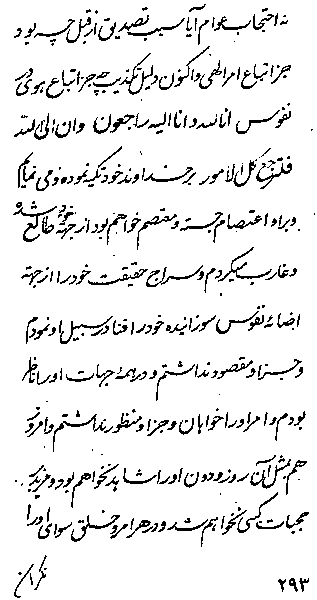 نه احتجاب عوام آیا سبب تصدیق از قبل چه بود
جز اتباع امر الهی و اکنون دلیل تکذیب چه جز اتباع هوی در
نفوس انا لله و انا الیه راجعون و ان الی الله
فلترجع کل الامور بر خداوند خود تکیه نموده و می نمایم
و براه اعتصام جسته و معتصم خواهم بود از جهة خود طالع شد و
و غارب میگردم و سراج حقیقت خود را از جهة
اضائه نفوس سوزانیده خود را فنا در سبیل او نمودم
و جز او مقصود نداشتم و در همه جهات او را ناظر
بودم و امر او را خواهان و جز او منظور نداشتم و امروز
هم بمثل آن روز و دون او را شاهد نخواهم بود و مزید
حجبات کسی نخواهم شد و در هر امر و خلق سوای او را
نگران
۲۹۳